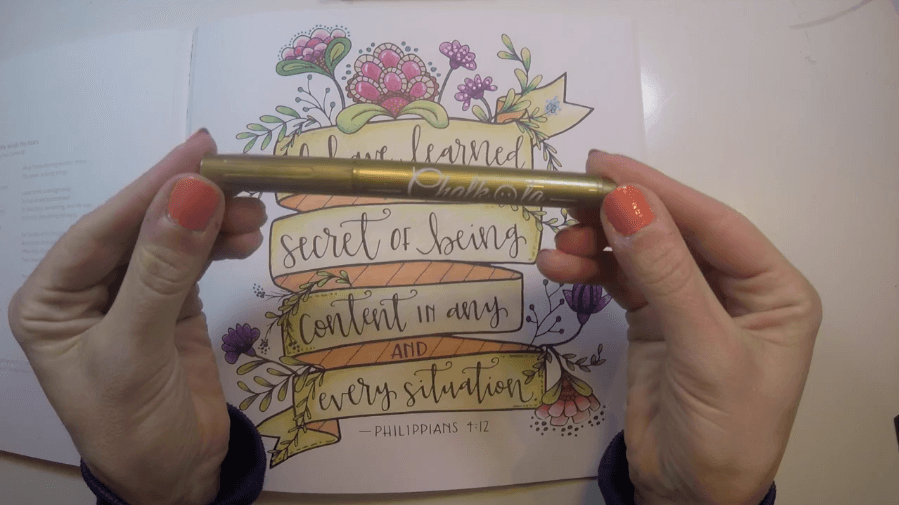 have learned
Chalkola
secret OF being
Content IN any
AND
every situation
—PHILIPPIANS 4:12